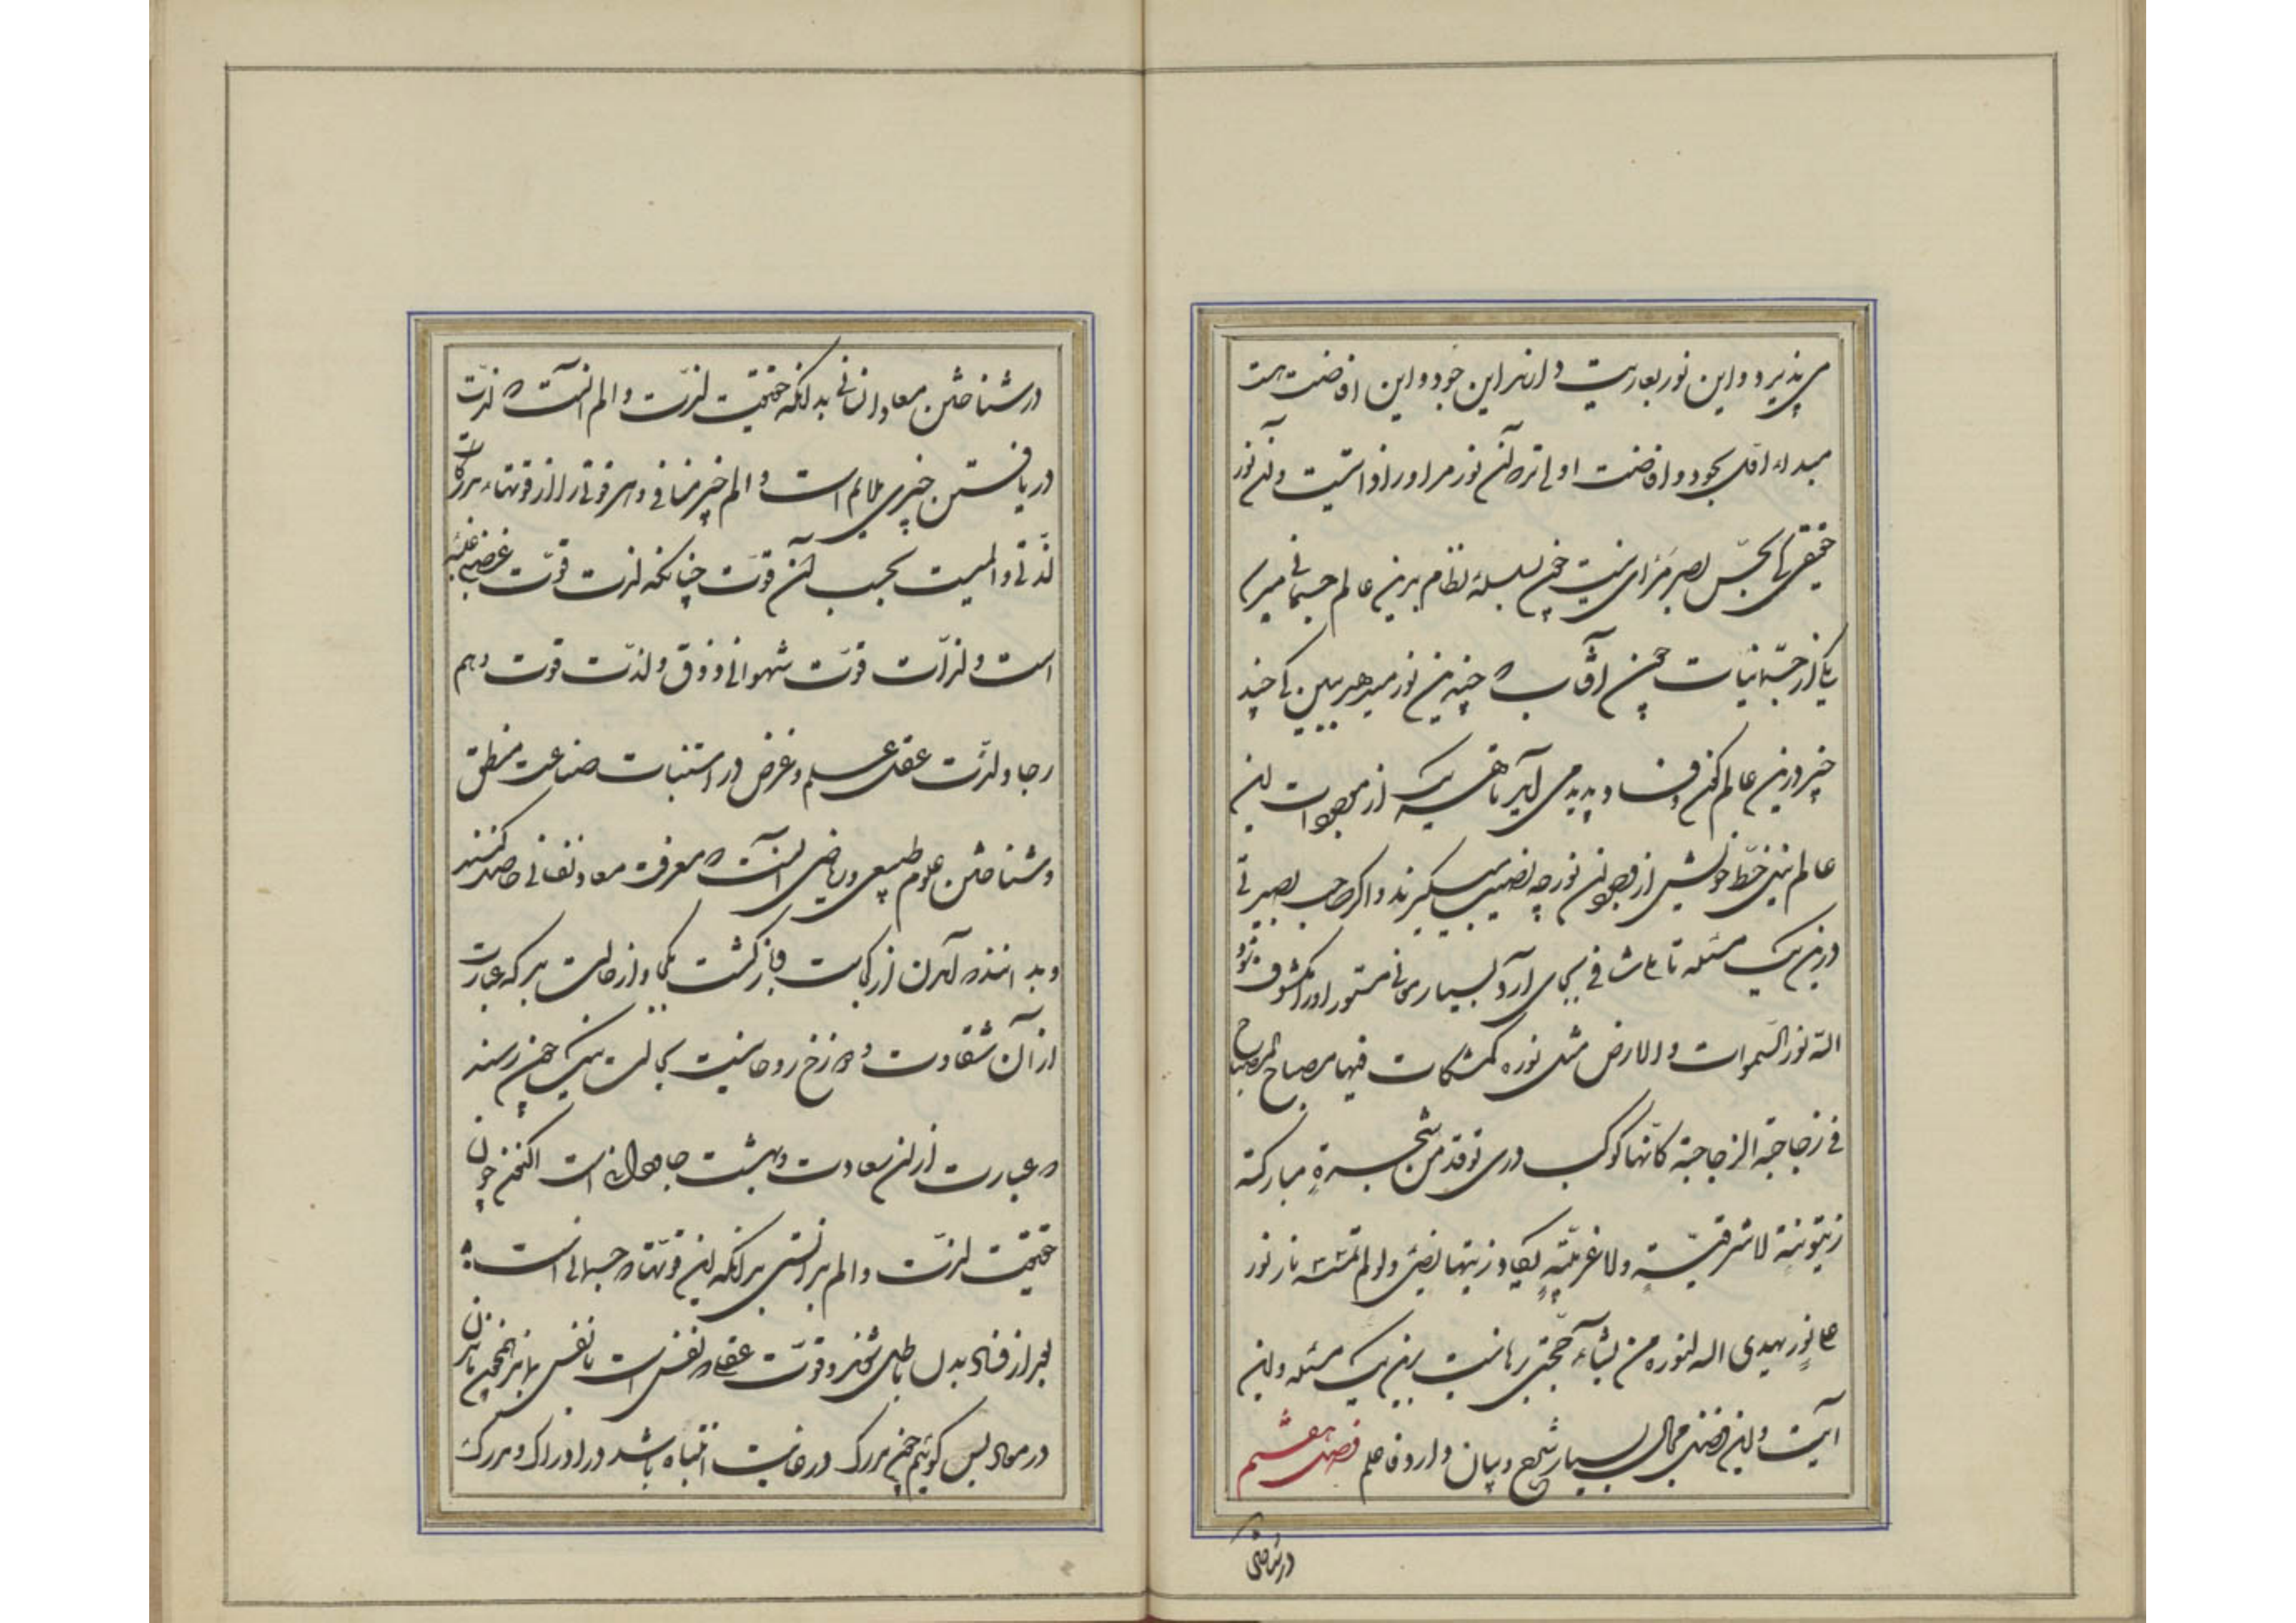 می‌پذیرد و این نور بعاریت دارند این جود و این افاضت است
مبداء اول بجود و افاضت اولی‌تر که آن نور مر او را ذواتیست و آن نور
حقیقی که بحس بصر مرئی نیست چون بسلسلهٔ نظام برین عالم جسمانی میرسد
یکی از جسمانیات چون آفتاب که چندین نور میدهد ببین که چند
چیز درین عالم کون و فساد پدید می‌آید تا هر یک از موجودات این
عالم حظ خویش از فیض آن نور چه نصیب میگیرند و اگر صاحب بصیرتی
درین یک مسئله تأمل شافی بجای آرد بسیاری مستور او را مکشوف شود
الله نور السموات والارض مثل نوره کمشکات فیها مصباح المصباح
فی زجاجة الزجاجة کانها کوکب دری توقد من شجرةٍ مبارکة
زیتونةٍ لا شرقیّةٍ ولا غربیّةٍ یکاد زیتها یضئ ولو لم تمسسه نار نور
علی نورٍ یهدی الله لنوره من یشآء حجتی برهانیست برین یک مسئله و این
آیت و این فصل مجال بسیار شرح و بیان دارد فاعلم فصل هشتم
در شناختن
در شناختن معاد انسانی بدانکه حقیقت لذت و الم آنست که لذّت
دریافتن چیزی ملایم است و الم چیز منافی و هر قوتی را از قوتهاء مدرکات
لذّتی و المیست بحسب آن قوّت چنانکه لذت قوّت غضبی غلبه
است و لذّات قوّت شهوانی ذوق و لذّت قوت وهم
رجا و لذّت عقل علم و غرض در استنبات صناعت منطق
و شناختن علوم طبیعی و ریاضی آنست که معرفت معاد نفسانی حاصل کنند
و بدانند که آمدن از کجاست و بازگشت بکجا و از حالت بد که عبارت
از آن شقاوت و دوزخ روحانیست بحالت نیک چون رسند
که عبارت از آن سعادت و بهشت جاودانیست اکنون چون
حقیقت لذّت و الم بدانستی بدانکه این قوّتها که جسمانی است
بعد از فساد بدن باطل شود و قوّت عقلی که نفس است با نفس بماند همچنین
در معاد پس گوئیم چون مدرک در غایت انتباه باشد در ادراک و مدرک